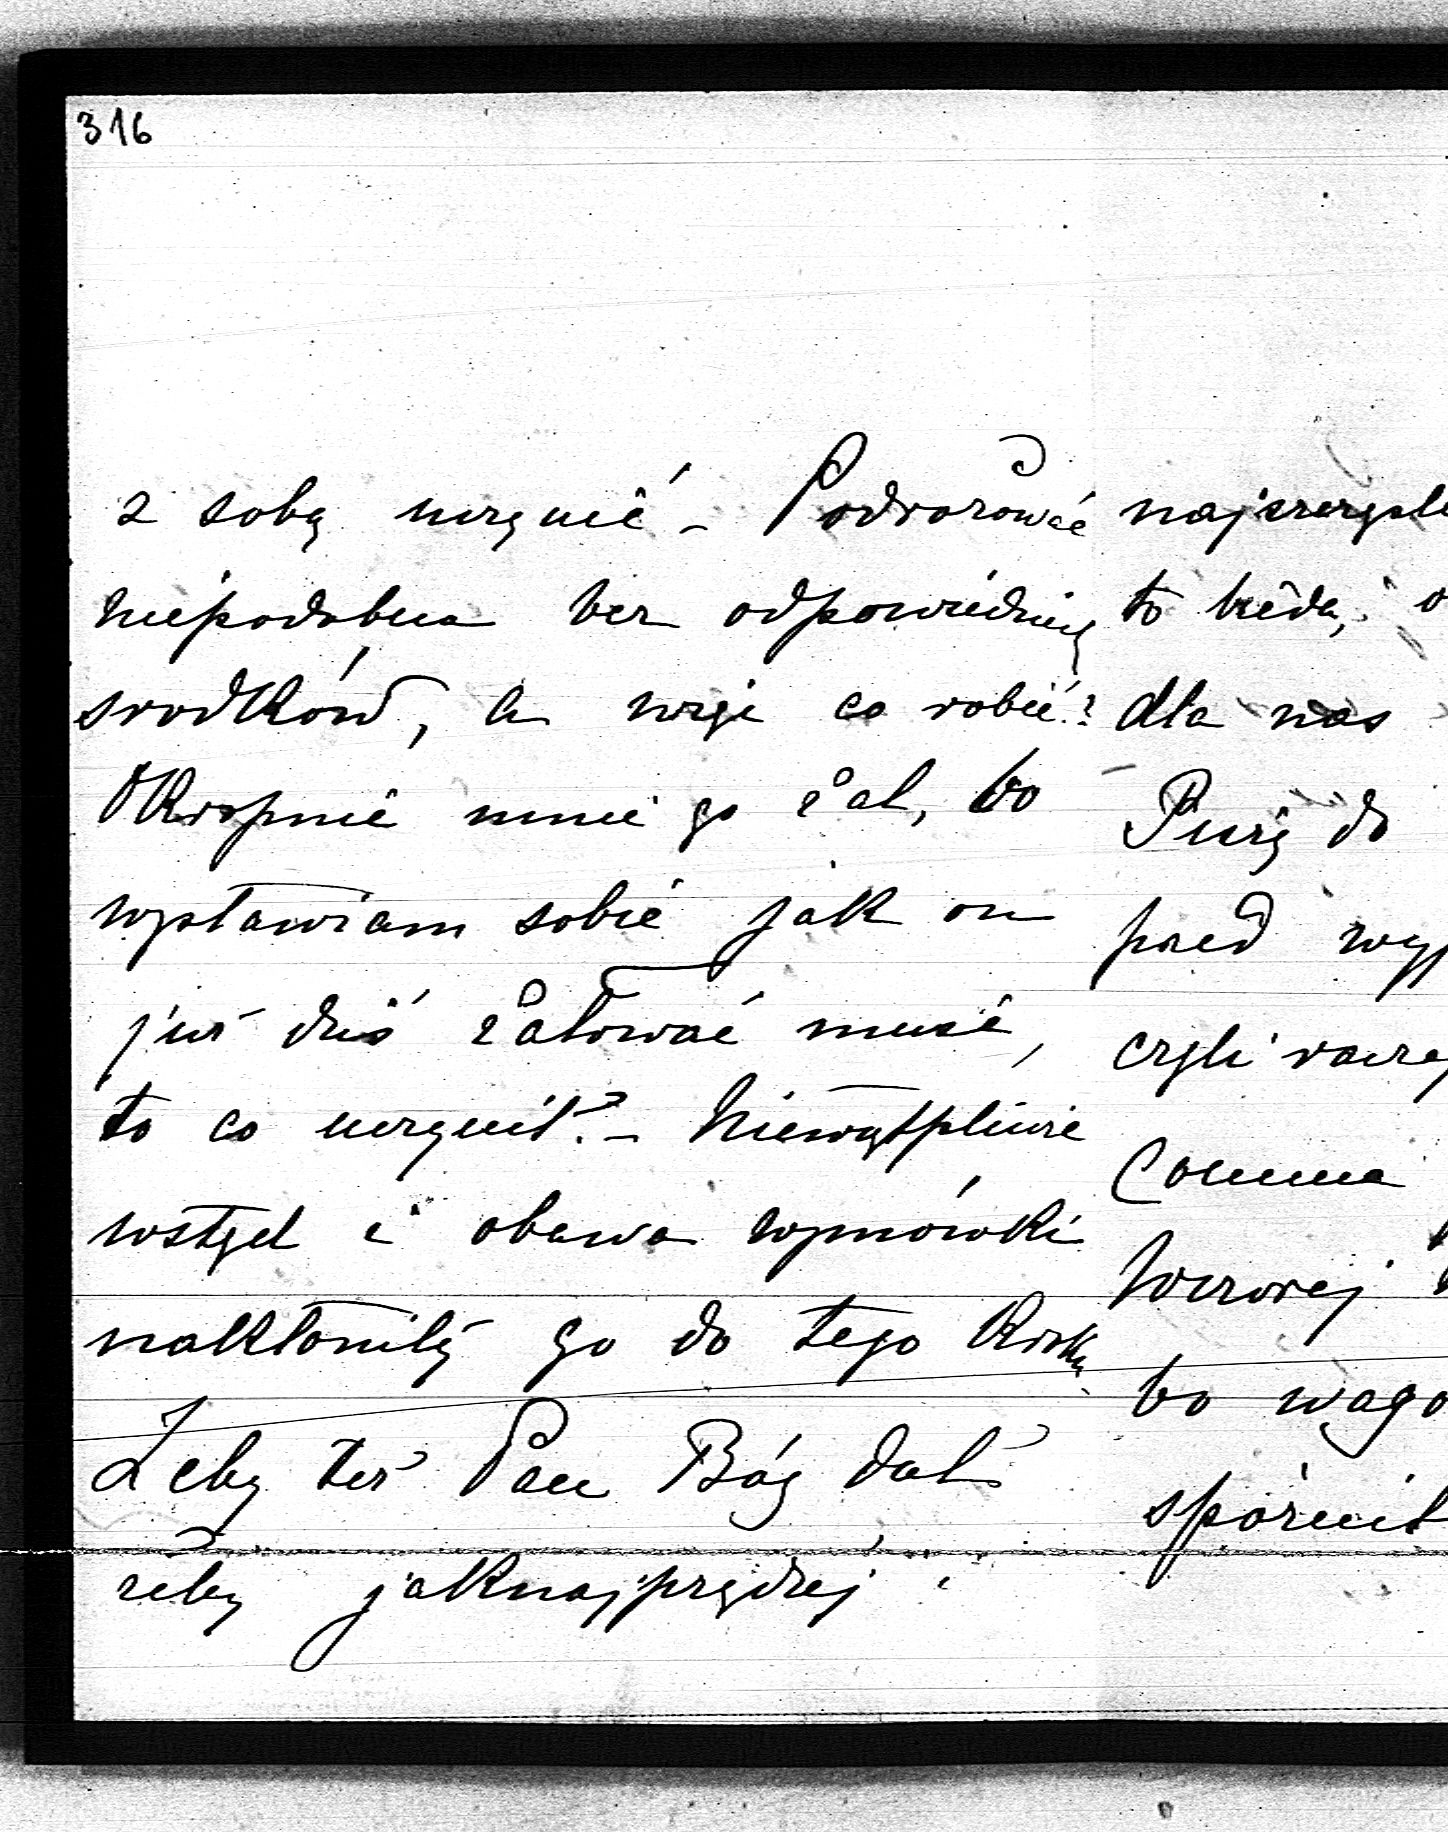 316
z sobą uczynić – Podróżować
niepodobna bez odpowiednich
srodków, a więc co robić?
Okropnie mnie go żal, bo
wystawiam sobie jak on
już dziś żałować musi,
to co uczynił? – Niewątpliwie
wstyd i obawa wymówki
nakłoniły go do tego kroku
Żeby też Pan Bóg dał
żeby jaknajprędzej i
najszczęśli
to bieda, o
dla nas
– Piszę do
przed wyj
czyli raczej
Comma
bo wago
spóźnił